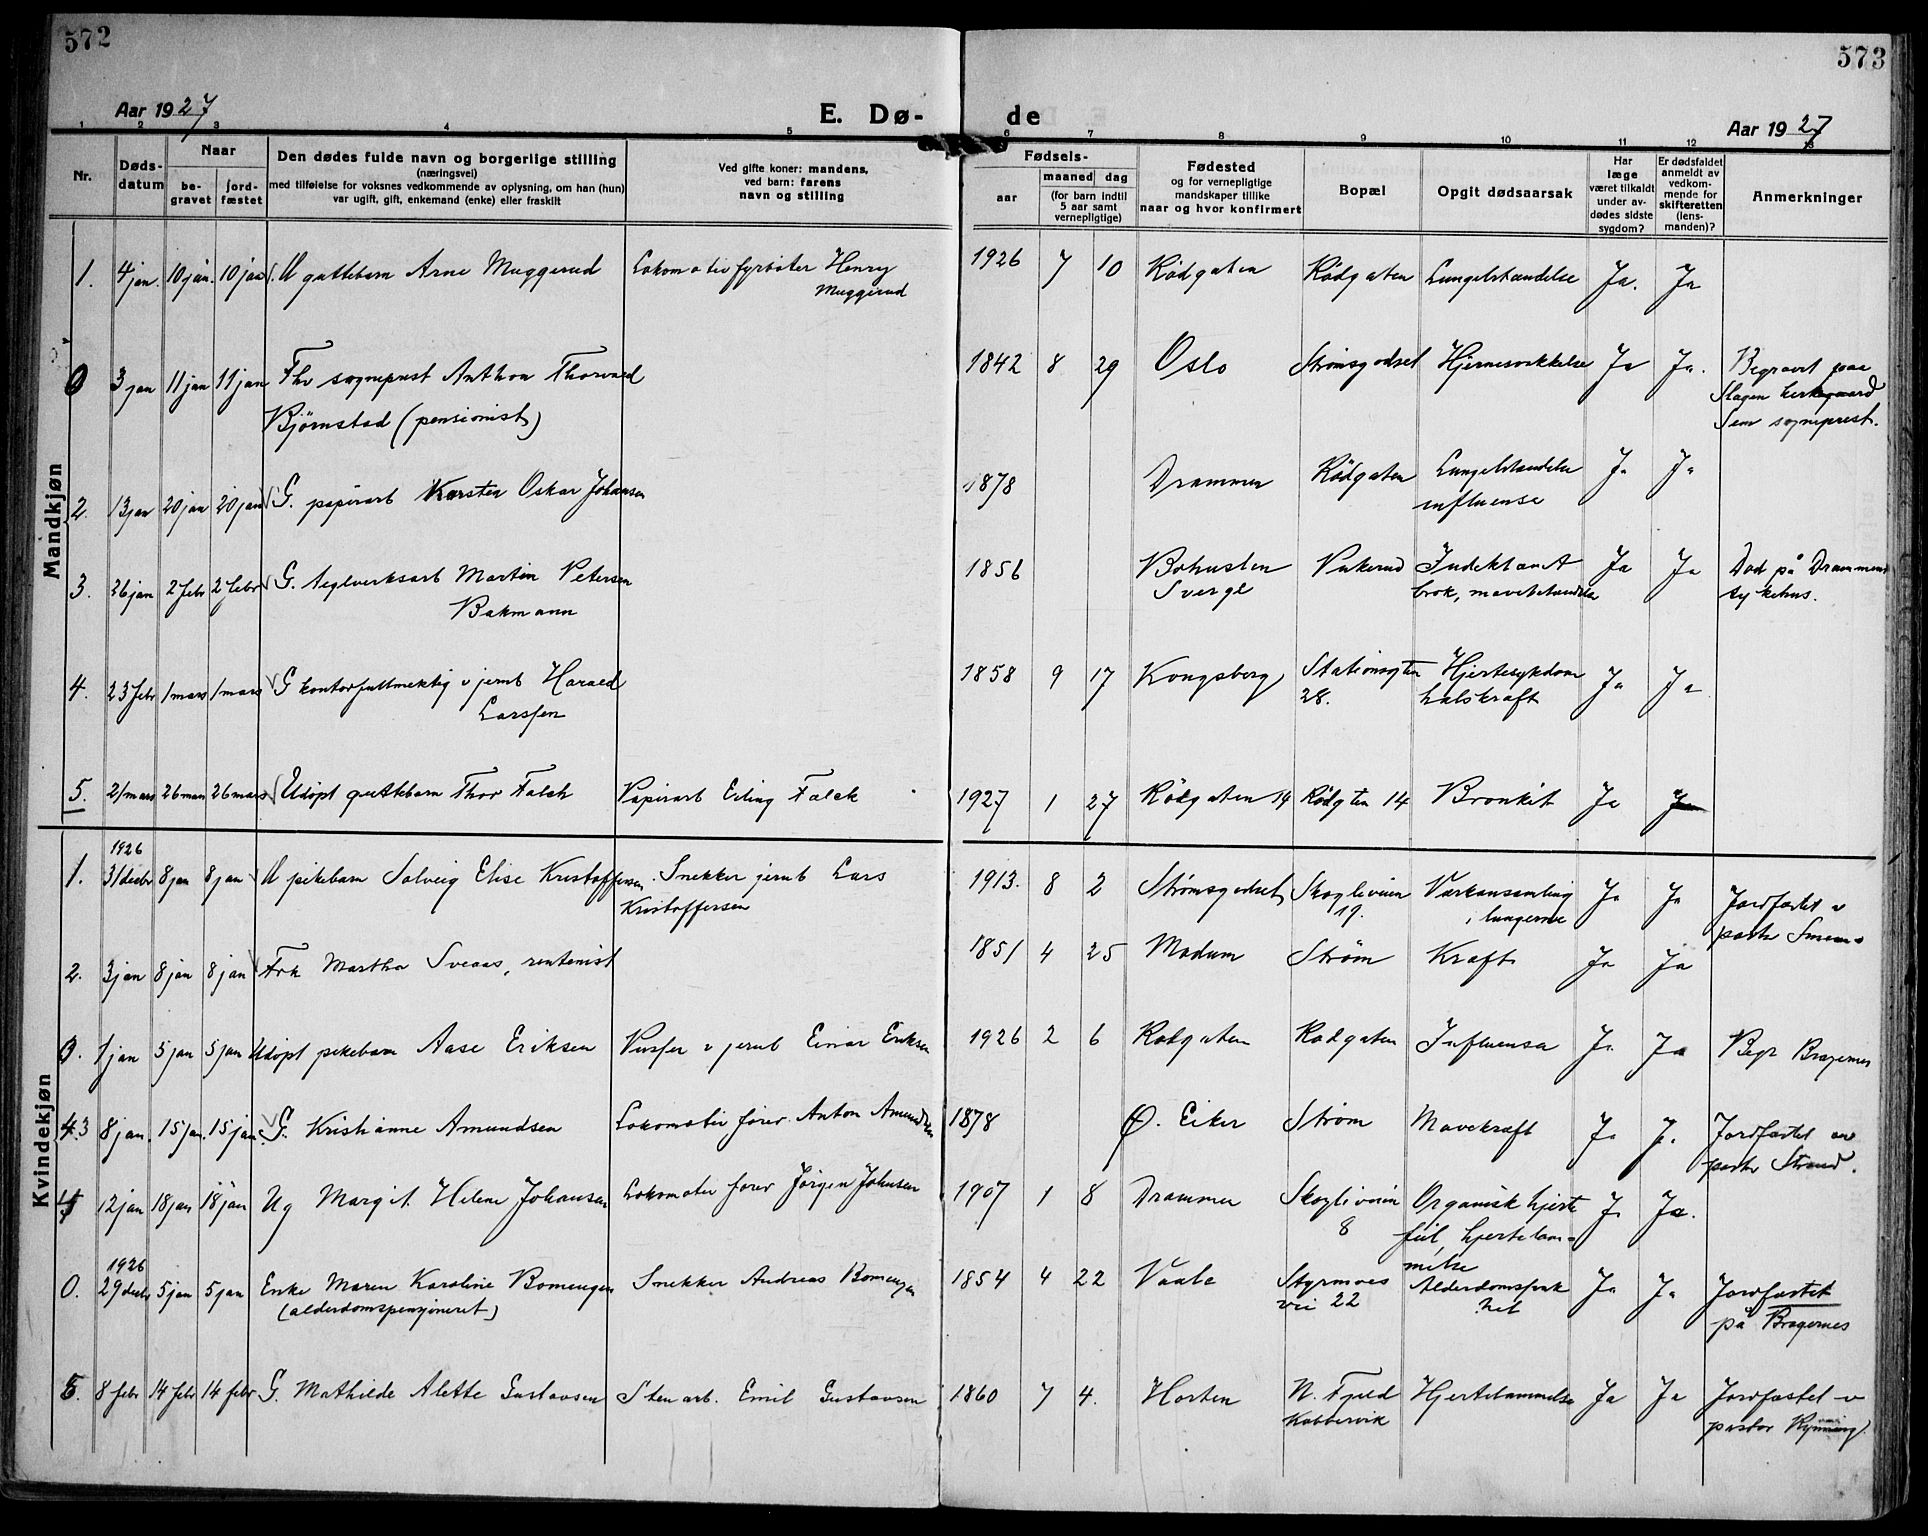 572
573
Aar 1927
E. Dø-
de
Aar 1927
1 2 3 4 5 6 7 8 9 10 11 12 13
Nr.
Døds-
datum
Naar
be-
gravet
jord-
fæstet
Den dødes fulde navn og borgerlige stilling
(næringsvei)
med tilføielse for voksnes vedkommende av oplysning, om han (hun)
var ugift, gift, enkemand (enke) eller fraskilt
Ved gifte koner: mandens,
ved barn: farens
navn og stilling
Fødsels-
aar
maaned dag
(for barn indtil
5 aar samt
vernepligtige)
Fødested
og for vernepligtige
mandskaper tillike
naar og hvor konfirmert
Bopæl
Opgit dødsaarsak
Har
læge
været tilkaldt
under av-
dødes sidste
sygdom?
Er dødsfaldet
anmeldt av
vedkom-
mende for
skifteretten
(lens-
manden)?
Anmerkninger
Mandkjøn
1. 4 jan. 10 jan. 10 jan U guttebarn Arne Muggerud Lokomotivfyrbøter Henry 1926 7 10 Rødgaten Rødgaten Lungebetændelse Ja. Ja
Muggerud
0 3 jan 11 jan 11 jan Fhv sogneprest Anthon Thorvald 1842 8 29 Oslo Strømsgodset Hjernesvekkelse Ja Ja. Begravet paa
Bjørnstad (pensionist) Slagen kirkegaard
Sem sogneprest.
2. 13 jan 20 jan 20 jan G. papirarb Karsten Oskar Johansen 1878 Drammen Rødgaten Lungebetændelse Ja Ja
influensa
3. 26 jan 2 febr 2 febr G. teglverksarb Martin Petersen 1856 Bohuslen Vikerud Indeklemt Ja Ja Død på Drammens
Bakmann Sverge brok, mavebetændelse sykehus.
4. 23 febr 1 mars 1 mars G kontorfullmektig v jernb Harald 1858 9 17 Kongsberg Stationsgten Hjertesykdom Ja Ja
Larssen 28. halskræft
5. 21 mars 26 mars 26 mars Udøpt guttebarn Thor Falck Papirarb Erling Falck 1927 1 27 Rødgaten 14 Rødgten 14 Bronkit Ja Ja
Kvindekjøn
1926
1. 31 decbr 8 jan 8 jan U pikebarn Solveig Elise Kristoffersen Snekker jernb Lars 1913. 8 2 Strømsgodset Skogliveien Værkansamling Ja Ja Jordfæstet v
Kristoffersen 19. i lungerne
2. 3 jan 8 jan 8 jan Frk Martha Sveaas, rentenist 1851 4 25 Modum Strøm Kræft Ja Ja
3. 1 jan 5 jan 5 jan Udøpt pikebarn Aase Eriksen Pusser v jernb Einar Eriksen 1926 2 6 Rødgaten Rødgaten Influensa Ja Ja Begr Bragernes
4.3 8 jan. 15 jan. 15 jan. G. Kristianne Amundsen Lokomotivfører Anton Amundsen 1878 Ø. Eiker Strøm Mavekræft Ja Ja. Jordfæstet av
pastor Strand.
4 12 jan 18 jan 18 jan Ug Margit Helene Johansen Lokomotivfører Jørgen Johansen 1907 1 8 Drammen Skogliveien Organisk hjerte Ja Ja.
8 feil, hjertelam-
melse
1926
0. 29 decbr 5 jan 5 jan Enke Maren Karoline Bomengen Snekker Andreas Bomengen 1854 4 22 Vaale Styrmoes Alderdomssvak Ja Ja Jordfæstet
(alderdomspensjoneret) vei 22 het på Bragernes
5. 8 febr 14 febr 14 febr G. Mathilde Alette Gustavsen Stenarb. Emil Gustavsen 1860 7 4. Horten N. Fjeld Hjertelammelse Ja Ja Jordfæstet v
Kobbervik pastor Rynning